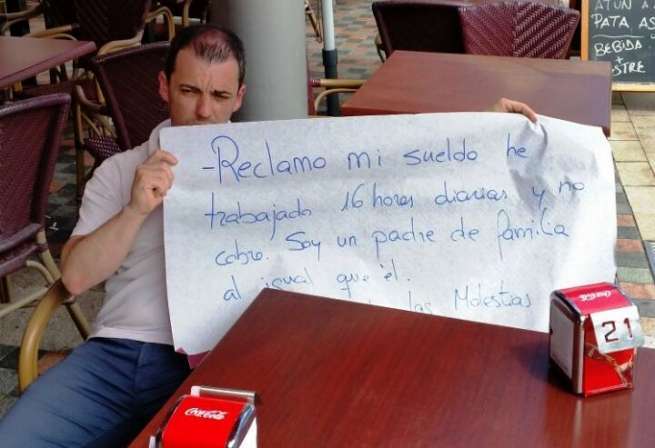 -Reclamo mi sueldo he
trabajado 16 horas diarias y no
cobro. Soy un padre de familia
al igual que él.
las Molestias
ATUN A
PATA AS
BEBIDA
+
STRE
Coca-Cola
21
Coca-Cola